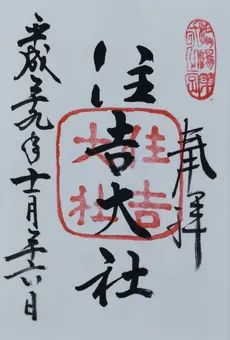 奉拝
住吉大社
住吉大社
平成二十九年十一月二十六日